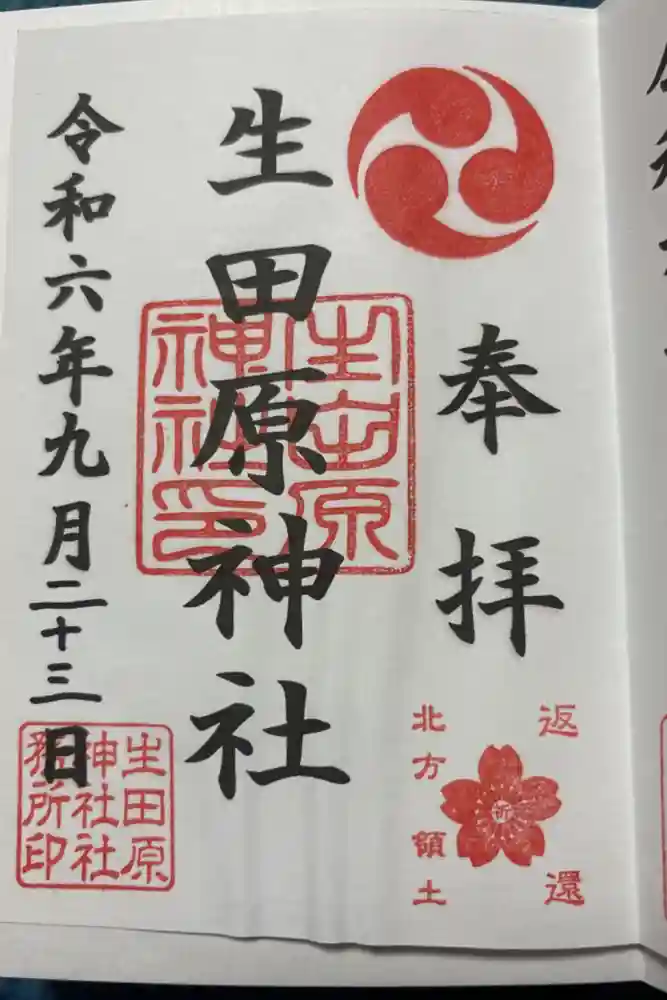 奉拝
北方領土
返還
祈
生田原神社
生田原
神社印
令和六年九月二十三日
生田原
神社社
務所印